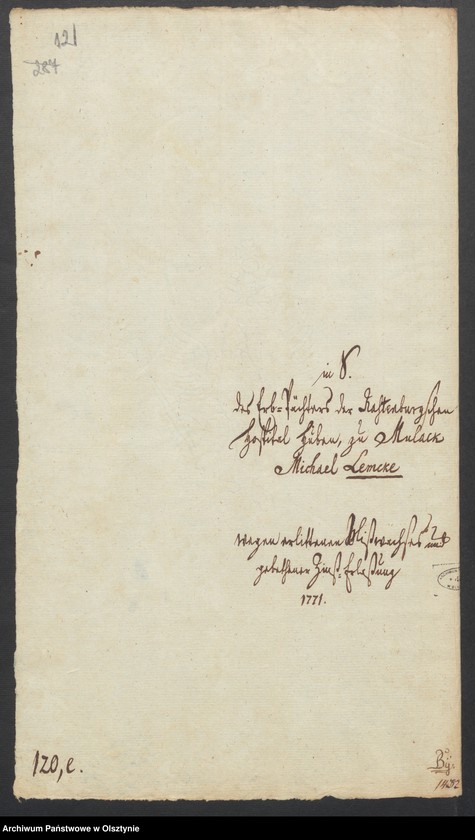 121
287
in S.
des Erb-Pächters der Rastenburgschen
Hospital Huben, zu Mulack
Michael Lemcke
wegen erlittenen Mißwachses und
gebethener Zinß-Erlaßung
1771.
120, e.
Archiwum Państwowe w Olsztynie